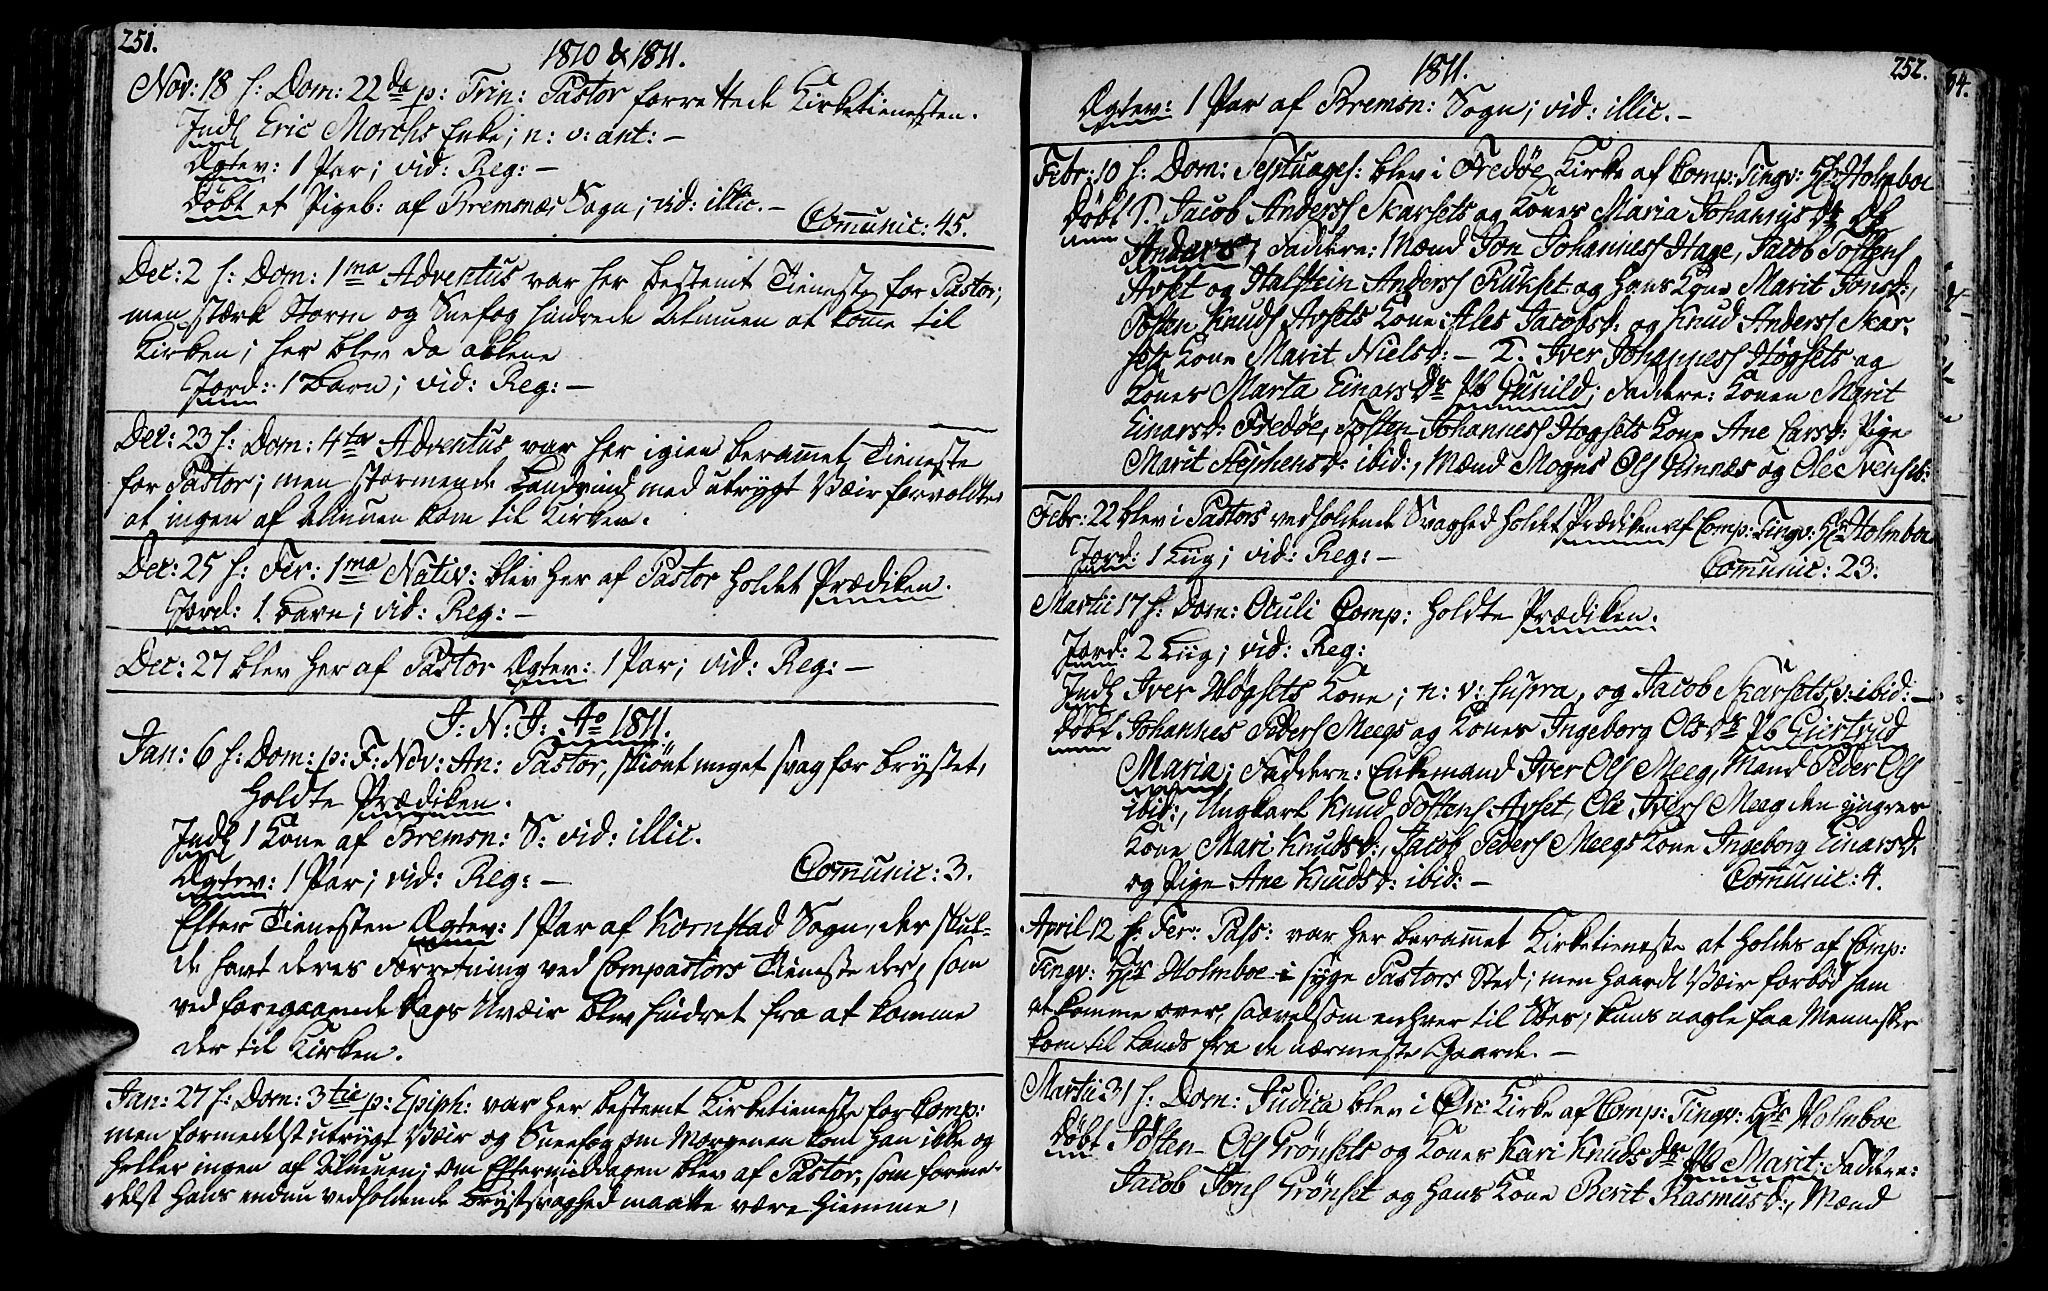 251.
1810 & 1811.
Nov: 18 h: Dom: 22da p: Trin: Pastor forrettede Kirketienesten.
Indl Eric Morchs Enke; n: v: ant: –
Ægtev: 1 Par; vid: Reg: –
Døbt et Pigeb: af Bremsnæs Sogn; vid: illic. –
Comunic: 45.
Dec: 2 h: Dom: 1ma Adventus var her bestemt Tieneste for Pastor;
men stærk Storm og Sneefog hindrede Almuen at kome til
Kirken; her blev da allene
Jord: 1 Barn; vid: Reg: –
Dec: 23 h: Dom: 4ta Adventus var her igien beramet Tieneste
for Pastor; men stormende Landvind med utrygt Væir forvoldte
at ingen af Almuen kom til Kirken.
Dec: 25 h: Fer: 1ma Nativ: blev her af Pastor holdet Prædiken.
Jord: 1 Barn; vid: Reg: –
Dec: 27 blev her af Pastor Ægtev: 1 Par; vid: Reg: –
J: N: J: Ao 1811.
Jan: 6 h: Dom: p: F: Nov: An: Pastor, skiønt meget svag for Brystet,
holdte Prædiken.
Indl 1 Kone af Bremsn: S: vid: illic.
Ægtev: 1 Par; vid: Reg: –
Comunic: 3.
Efter Tienesten Ægtev: 1 Par af Kornstad Sogn, der skul-
de havt deres Forretning ved Compastors Tieneste der, som
ved foregaaende Dags Uvæir blev hindret fra at komme
der til Kirken.
Jan: 27 h: Dom: 3tie p: Epiph: var her bestemt Kirketieneste for Comp:
men formedelst utrygt Væir og Sneefog om Morgenen kom han ikke og
heller ingen af Almuen; om Eftermiddagen blev af Pastor, som forme-
delst hans endnu vedholdende Brystsvaghed maatte være hiemme,
252.
1811.
Ægtev: 1 Par af Bremsn: Sogn; vid: illic. –
Febr: 10 h: Dom: Septuages: blev i Fredøe Kirke af Comp: Tingv: Hr Holmboe
Døbt P. Jacob Anders Skarsets og Kones Maria Johannis Dr Db
Anders; Faddere: Mænd Jon Johannes Hage, Jacob Tostens
Avset og Halstein Anders Rukset og hans Kone Marit Jonsd:,
Tosten Knuds Avsets Kone Ales Jacobsd: og Knud Anders Skar-
sets Kone Marit Nielsd: – T. Iver Johannes Høgsets og
Kones Marta Einars Dr Pb Gunild; Faddere: Konen Marit
Einarsd: Fredøe, Tosten Johannes Høgsets Kone Ane Larsd: Pige
Marit Stephensd: ibid:, Mænd Mogns Ols Fünnes og Ole Svens ib:
Febr: 22 blev i Pastors vedholdende Svaghed holdet Prædiken af Comp: Tingv: Hr Holmboe
Jord: 1 Liig; vid: Reg: –
Comunic: 23.
Martii 17 h: Dom: Oculi Comp: holdte Prædiken.
Jord: 2 Liig; vid: Reg:
Indl Iver Høgsets Kone; n: v: supra, og Jacob Skarsets, v: ibid: –
Døbt Johannes Peders Meegs og Kones Ingeborg Ols Dr Pb Giertrud
Maria; Faddere: Enkemand Iver Ols Meeg, Mand Peder Ols
ibid:, Ungkarl Knud Tostens Avset, Ole Ivers Meeg den yngres
Kone Mari Knudsd:, Jacob Peders Meegs Kone Ingeborg Einarsd:
og Pige Ane Knudsd: ibid: –
Comunic: 4.
April 12 h: Fer: Pass: var her beramet Kirketieneste at holdes af Comp:
Tingv: Hr Holmboe i syge Pastors Sted; men haardt Væir forbød ham
at komme over, saavelsom enhver til Søes; kuns nogle faa Mennesker
kom til Lands fra de nærmeste Gaarde. –
Martii 31 h: Dom: Judica blev i Øre Kirke af Comp: Tingv: Hr Holmboe
Døbt Tosten Ols Grönsets og Kones Kari Knuds Dr Pb Marit; Faddere:
Jacob Jons Grönset og hans Kone Berit Rasmusd:, Mænd